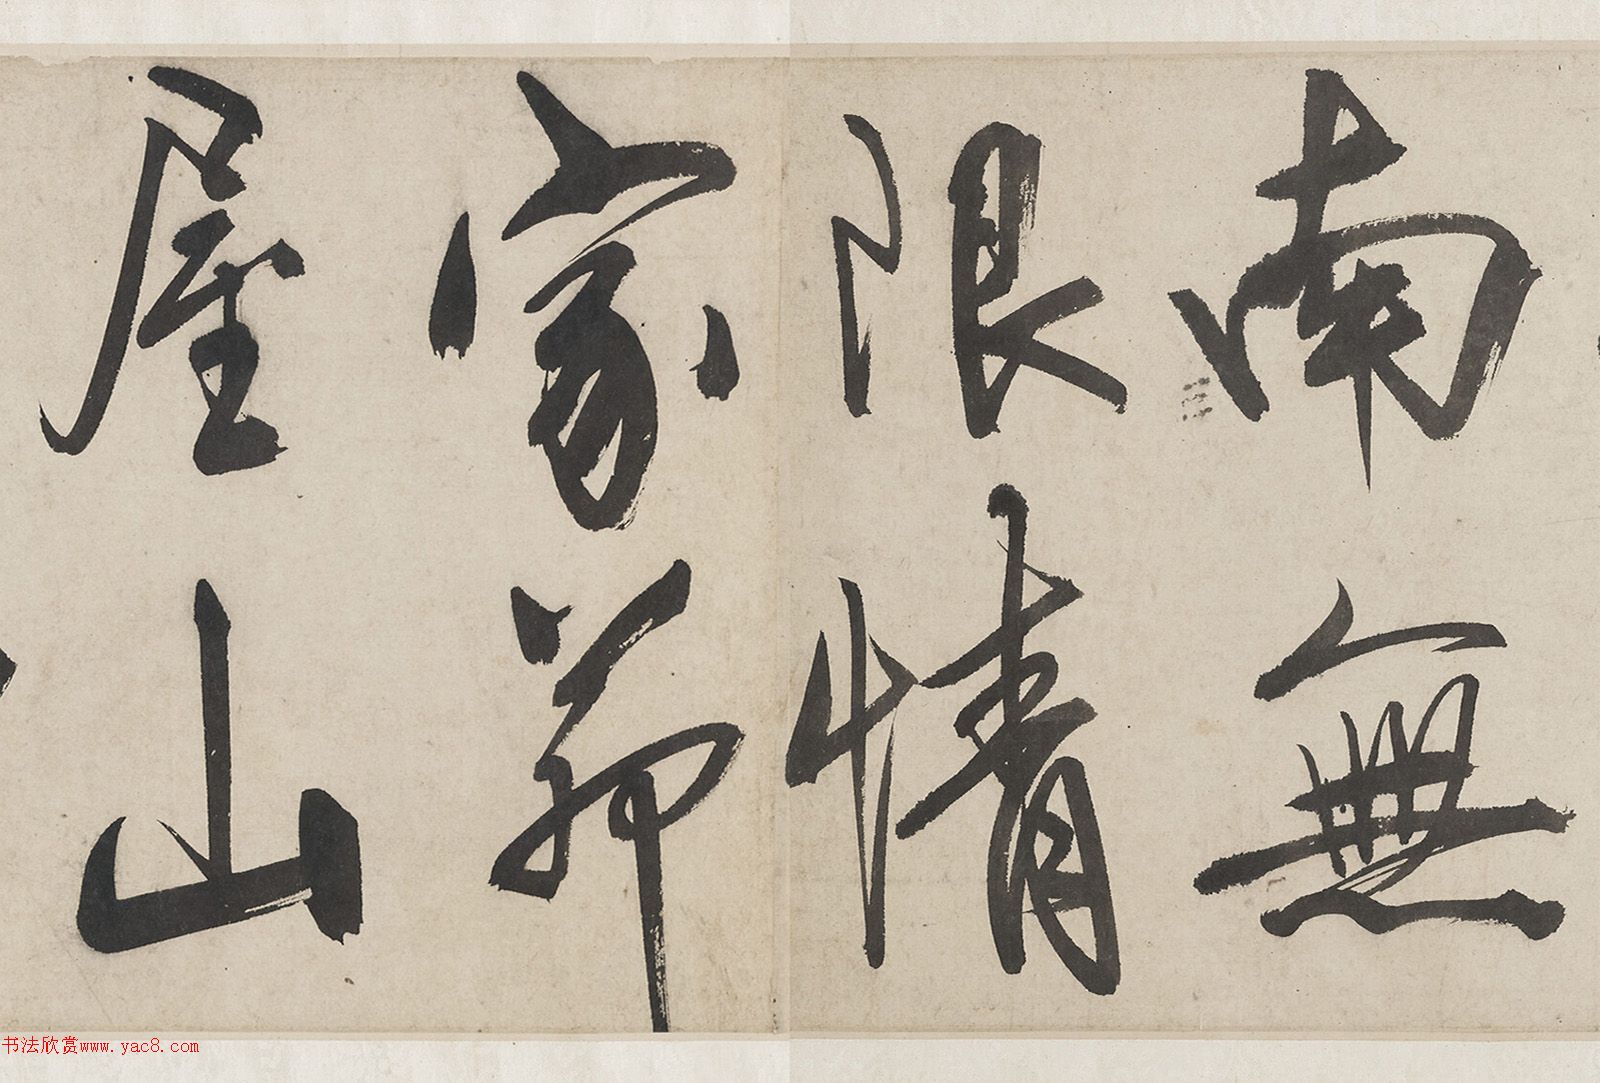 南無
限情
家茆
屋山
书法欣赏www.yac8.com